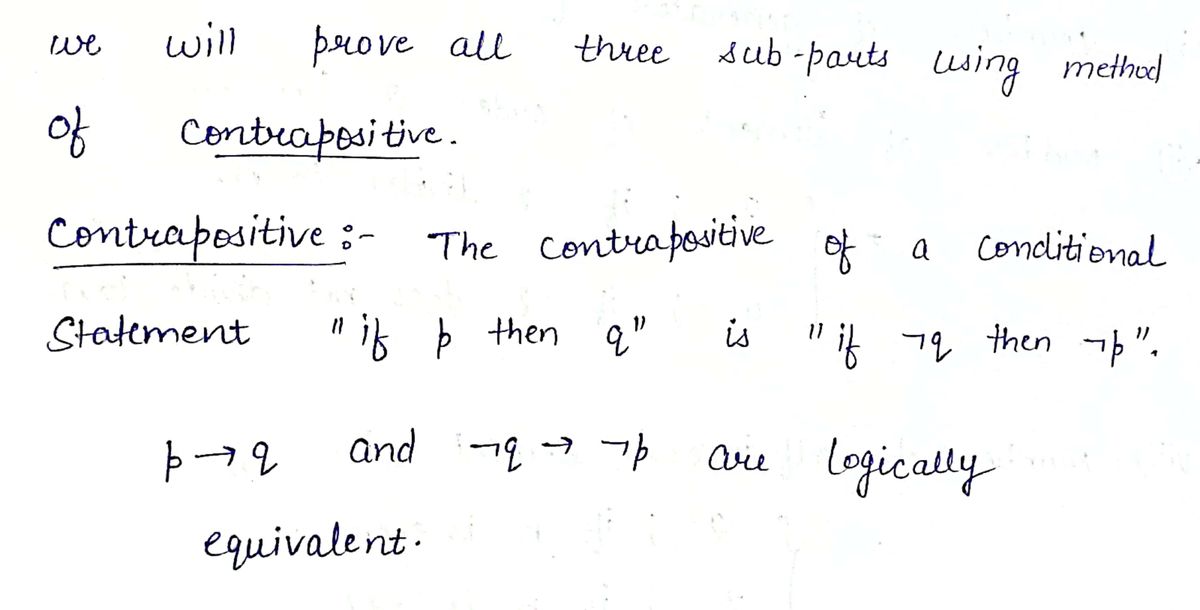 we will prove all three sub-parts using method
of Contrapositive.
Contrapositive :- The Contrapositive of a Conditional
Statement "if p then q" is "if ¬q then ¬p".
p → q and ¬q → ¬p are logically
equivalent.